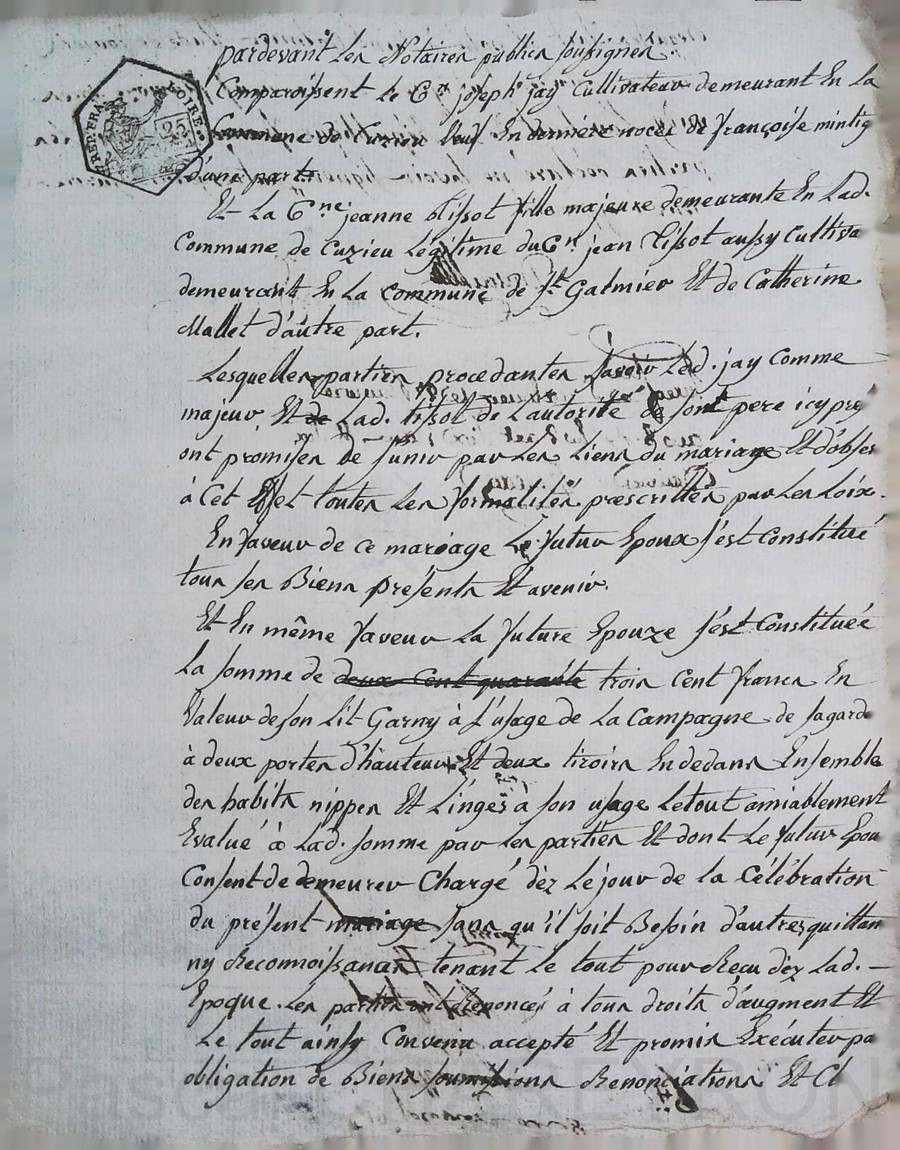 pardevant les Notaires publics soussignes
Comparoissent le C.en joseph jay Cultivateur demeurant En la
Commune de Cuzieu veuf En derniére noces de françoise
d'une part.
Et La C.ne jeanne Tissot fille majeure demeurante En Lad.
Commune de Cuzieu Légitime du C.n jean Tissot aussy Cultiva
demeurant En La Commune de S.t Galmier Et de Catherine
Mallet d'autre part.
Lesquelles parties procedantes savoir Led. jay Comme
majeur, Et de Lad. tissot de Lautorité de son pere icy pre
ont promises de s'unir par les Liens du mariage Et d'obser
à Cet Effet toutes Les formalités prescrittes par Les Loix.
En faveur de ce mariage Le futur Epoux s'est Constitué
tous ses Biens présents Et avenir.
Et En même faveur La future Epouze s'est Constituée
La somme de deux Cent quarante trois Cent francs En
Valeur de son Lit Garny à L'usage de La Campagne de sa garde
à deux portes d'hauteur Et deux tiroirs En dedans Ensemble
des habits nippes Et Linges a son usage Le tout amiablement
Evalué à Lad. somme par Les parties Et dont Le futur Epou
Consent de demeurer Chargé déz Le jour de la Célébration
du présent mariage sans qu'il soit Besoin d'autres quittan
ny Reconnoissances tenant Le tout pour Recu déz Lad. —
Epoque. Les parties ont Renoncés à tous droits d'augment Et
Le tout ainsy Convenu accepté Et promis Exécuter pa
obligation de Biens soumissions Renonciations Et Cl
REP. FRA.
LOIRE
25